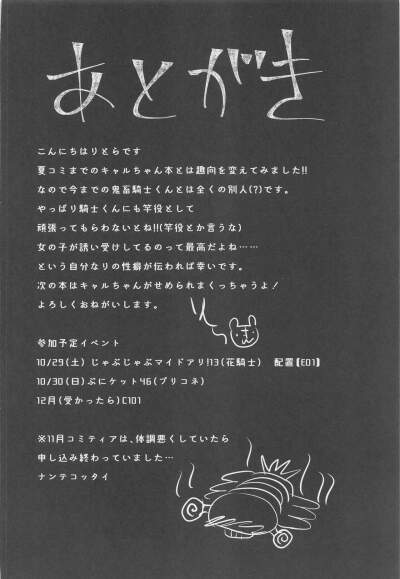 あとがき
こんにちはりとらです
夏コミまでのキャルちゃん本とは趣向を変えてみました!!
なので今までの鬼畜騎士くんとは全くの別人(?)です。
やっぱり騎士くんにも竿役として
頑張ってもらわないとね!!(竿役とか言うな)
女の子が誘い受けしてるのって最高だよね……
という自分なりの性癖が伝われば幸いです。
次の本はキャルちゃんがせめられまくっちゃうよ!
よろしくおねがいします。
参加予定イベント
10/29(土) じゃぶじゃぶマイドアリ!13(花騎士) 配置【E01】
10/30(日)ぷにケット46(プリコネ)
12月(受かったら)C101
※11月コミティアは、体調悪くしていたら
申し込み終わっていました…
ナンテコッタイ